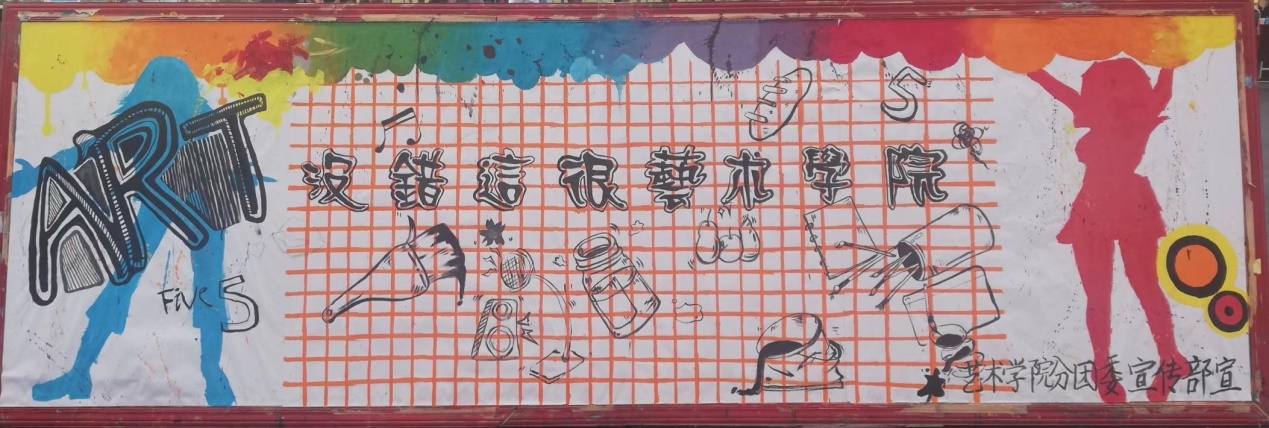 ART
Five 5
5
没錯這很藝术學院
艺术学院分团委宣传部宣